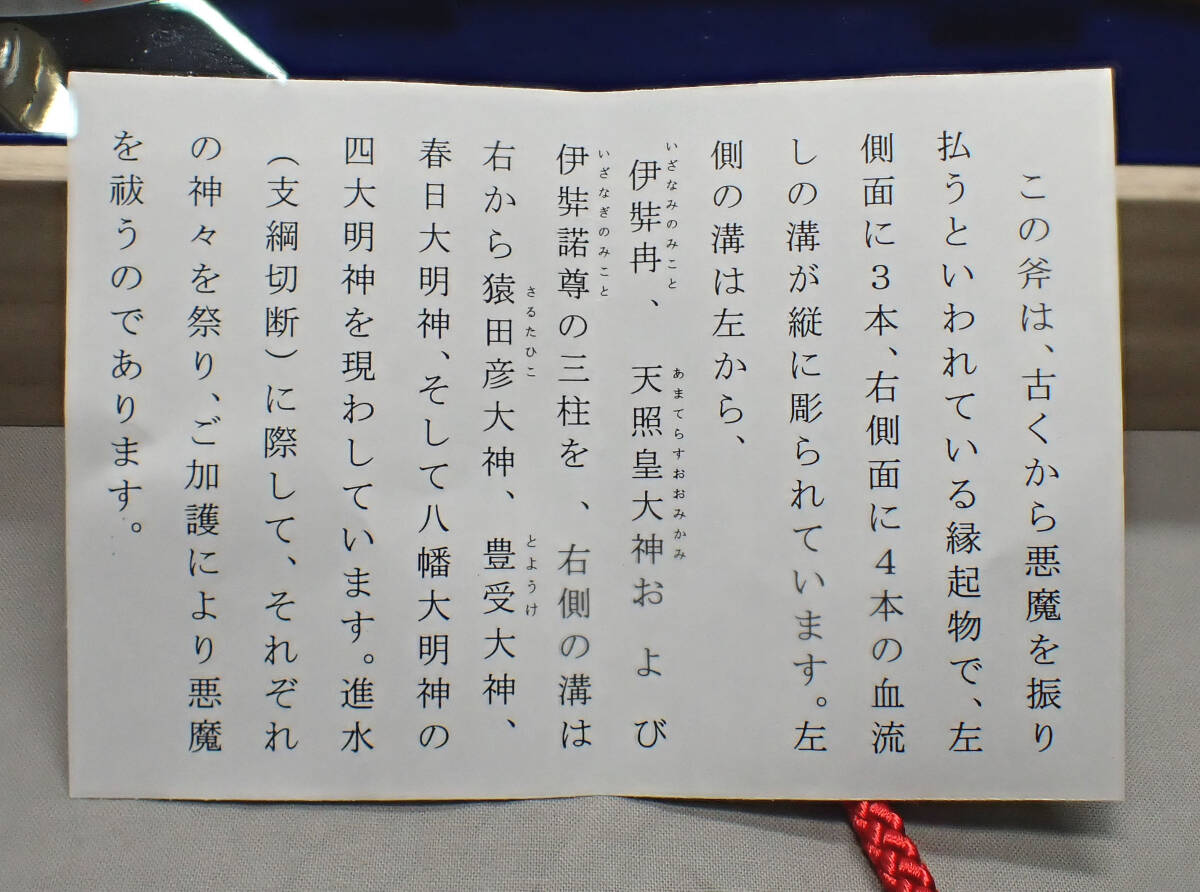 この斧は、古くから悪魔を振り
払うといわれている縁起物で、左
側面に3本、右側面に4本の血流
しの溝が縦に彫られています。左
側の溝は左から、
いざなみのみこと
あまてらすおおみかみ
伊弉冉、天照皇大神および
いざなぎのみこと
伊弉諾尊の三柱を、右側の溝は
さるたひこ
とようけ
右から猿田彦大神、豊受大神、
春日大明神、そして八幡大明神の
四大明神を現わしています。進水
(支綱切断)に際して、それぞれ
の神々を祭り、ご加護により悪魔
を祓うのであります。